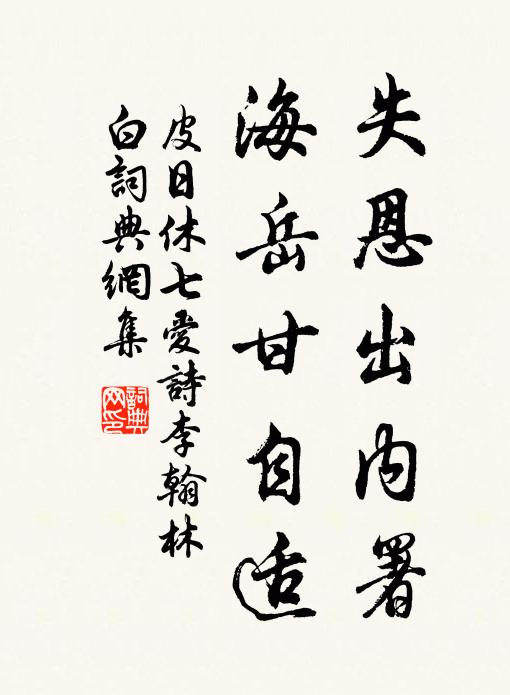 失恩出內署
海岳甘自适
皮日休七愛詩李翰林
白詞典網集
詞典网印